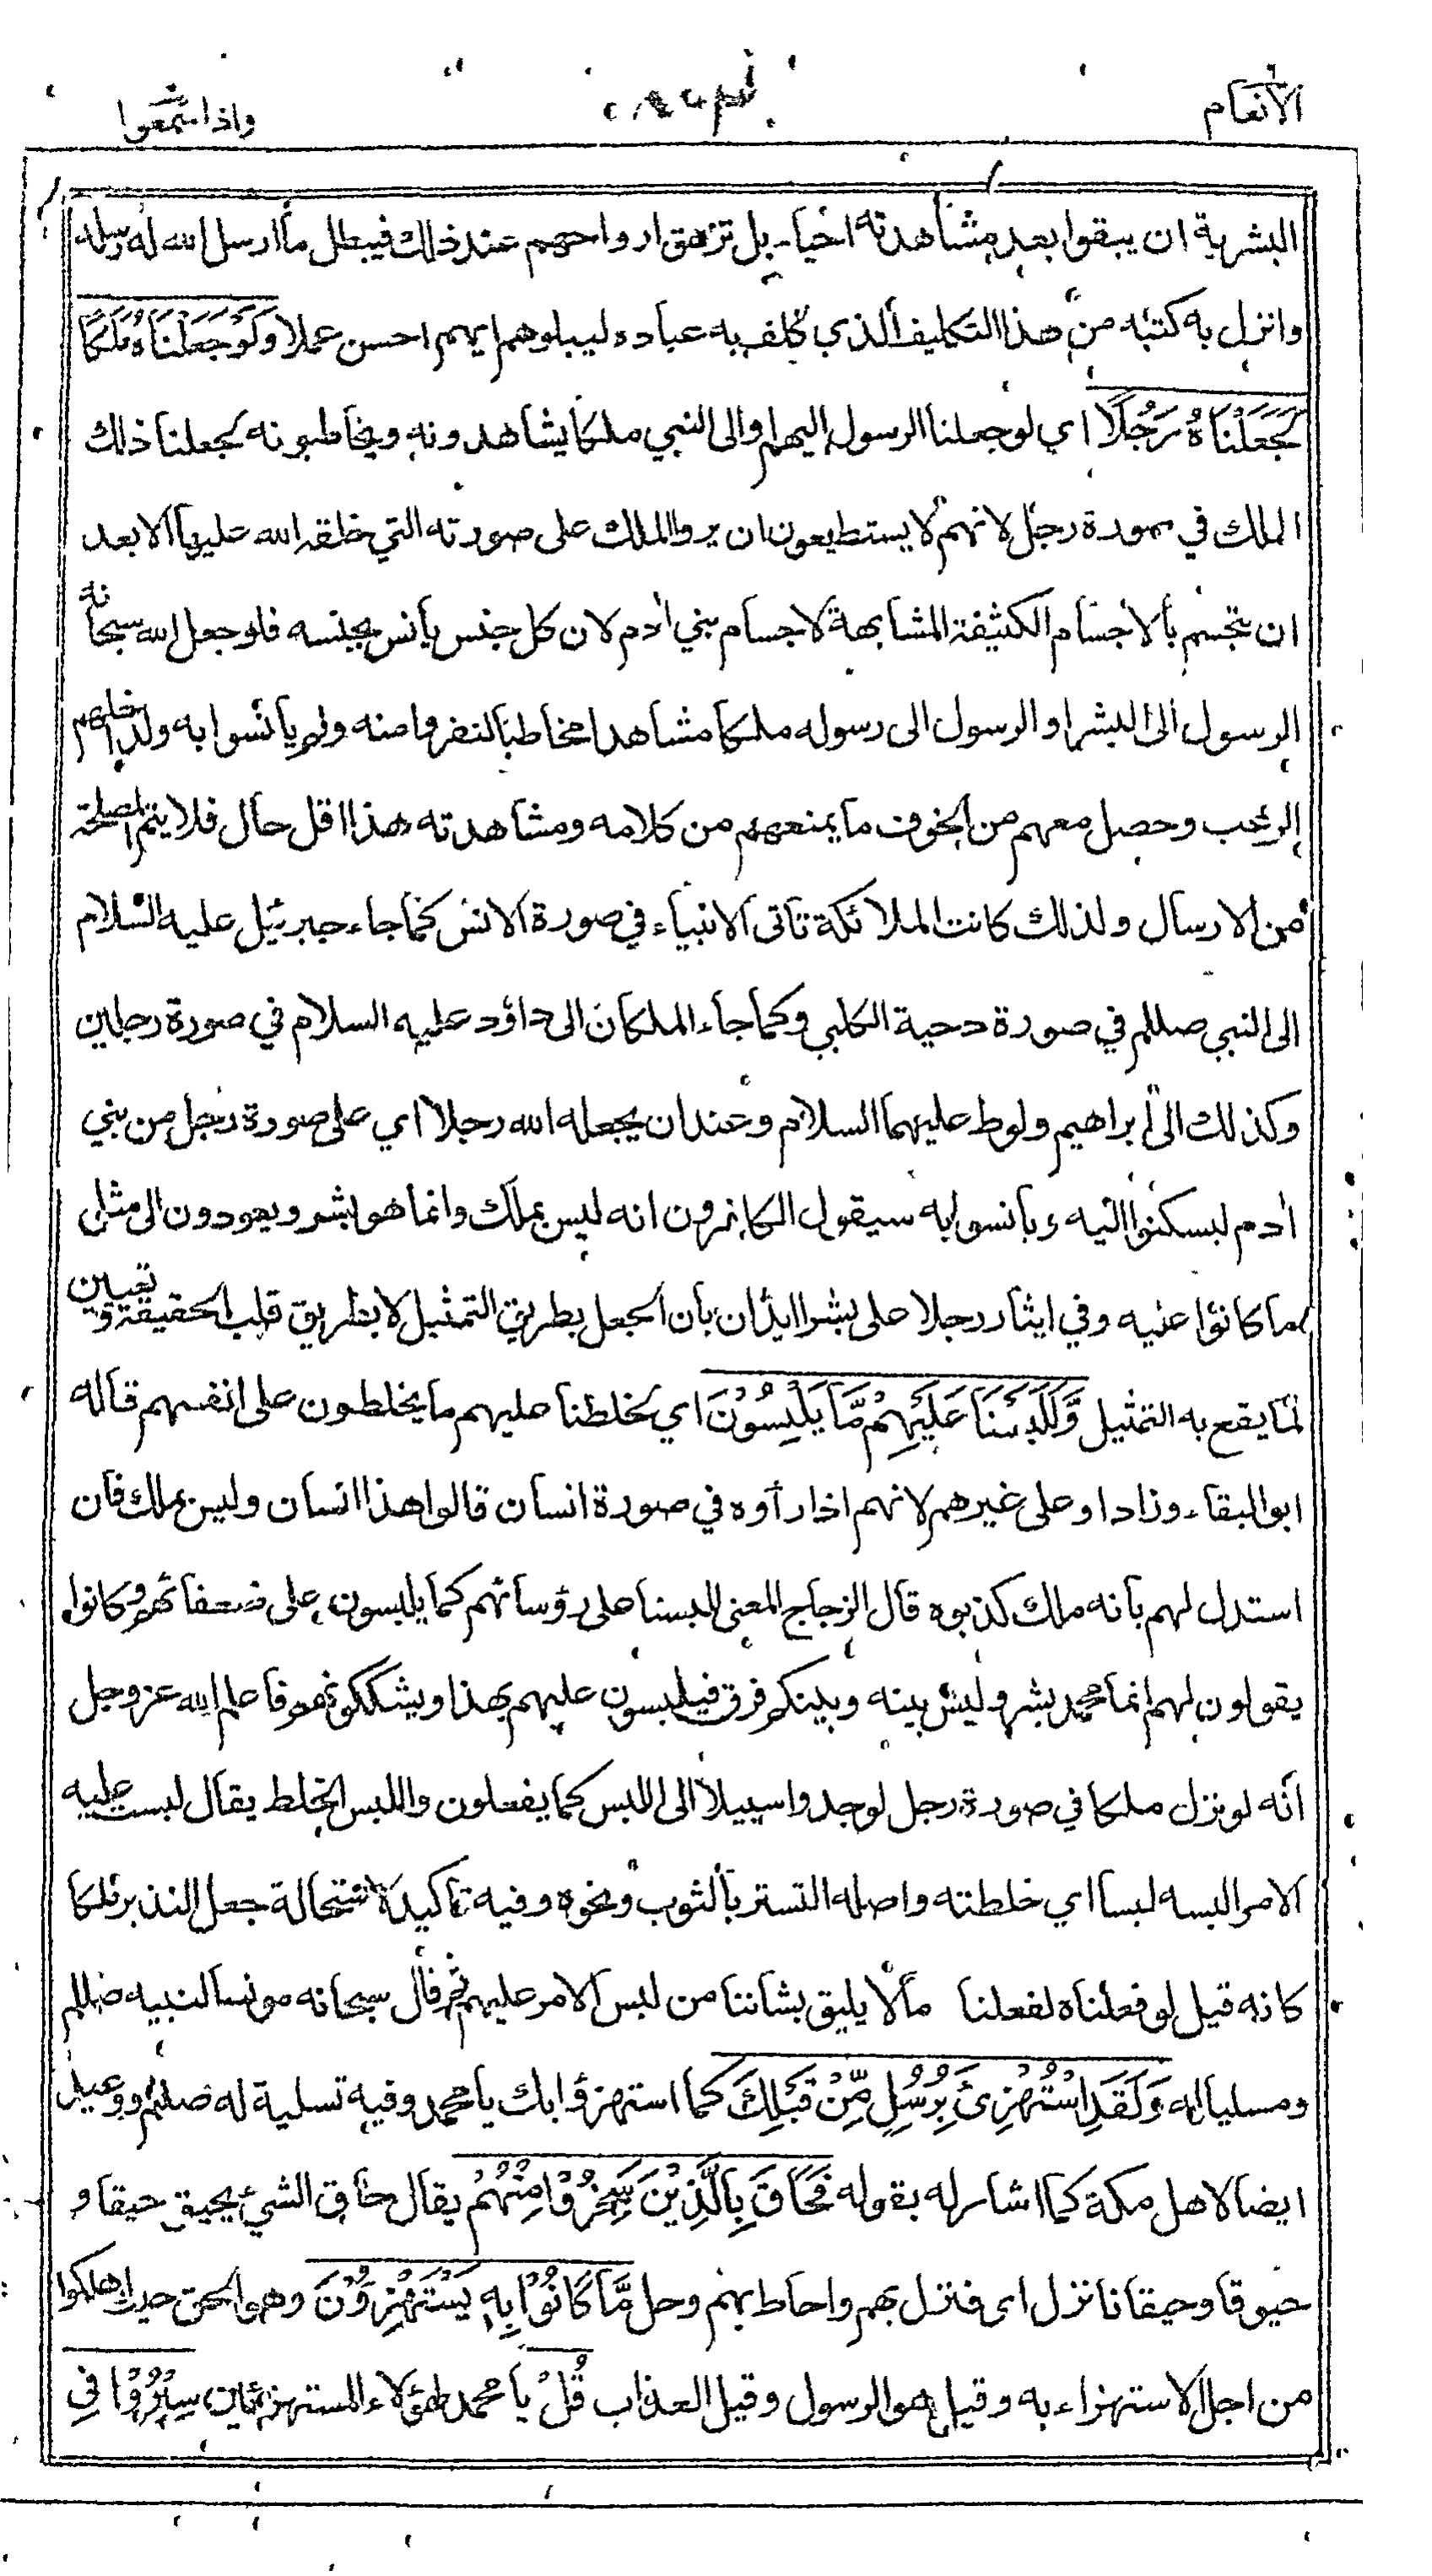 الأنعام
واذا سمعوا
البشرية ان يبقوا بعد مشاهدته احياء بل تزهق ارواحهم عند ذلك فيبطل ما ارسل الله له رسله
وانزل به كتبه من هذا التكليف الذي كلف به عباده ليبلوهم ايهم احسن عملا وَلَوْ جَعَلْنَاهُ مَلَكًا
لَجَعَلْنَاهُ رَجُلًا اي لو جعلنا الرسول اليهم او الى النبي ملكا يشاهدونه ويخاطبونه لجعلنا ذلك
الملك في صورة رجل لانهم لا يستطيعون ان يروا الملك على صورته التي خلقه الله عليها الا بعد
ان يتجسم بالاجسام الكثيفة المشابهة لاجسام بني آدم لان كل جنس يأنس بجنسه فلو جعل الله سبحانه
الرسول الى البشر او الرسول الى رسوله ملكا مشاهدا مخاطبا لنفروا منه ولم يأنسوا به ولداخلهم
الرعب وحصل معهم من الخوف ما يمنعهم من كلامه ومشاهدته هذا اقل حال فلا يتم المصلحة
من الارسال ولذلك كانت الملائكة تاتى الانبياء في صورة الانس كما جاء جبرئيل عليه السلام
الى النبي صللم في صورة دحية الكلبي وكما جاء الملكان الى داؤد عليه السلام في صورة رجلين
وكذلك الى ابراهيم ولوط عليهما السلام وعند ان يجعله الله رجلا اي على صورة رجل من بني
آدم ليسكنوا اليه ويأنسوا به سيقول الكافرون انه ليس بملك وانما هو بشر ويعودون الى مثل
ما كانوا عليه وفي ايثار رجلا على بشرا ايذان بان الجعل بطريق التمثيل لا بطريق قلب الحقيقة وتعيين
لما يقع به التمثيل وَّلَلَبَسْنَا عَلَيْهِمْ مَّا يَلْبِسُوْنَ اي لخلطنا عليهم ما يخلطون على انفسهم قاله
ابو البقاء وزاد او على غيرهم لانهم اذا رأوه في صورة انسان قالوا هذا انسان وليس بملك فان
استدل لهم بانه ملك كذبوه قال الزجاج المعنى للبسنا على رؤسائهم كما يلبسون على ضعفائهم وكانوا
يقولون لهم انما محمد بشر وليس بينه وبينكم فرق فيلبسون عليهم بهذا ويشككونهم فاعلم الله عز وجل
انه لو نزل ملكا في صورة رجل لوجدوا سبيلا الى اللبس كما يفعلون واللبس الخلط يقال لبست عليه
الامر البسه لبسا اي خلطته واصله التستر بالثوب ونحوه وفيه تاكيد لاستحالة جعل النذير ملكا
كانه قيل لو فعلناه لفعلنا ما لا يليق بشاننا من لبس الامر عليهم ثم قال سبحانه مونسا لنبيه صللم
ومسليا له وَلَقَدِ اسْتُهْزِئَ بِرُسُلٍ مِّنْ قَبْلِكَ كما استهزؤا بك يا محمد وفيه تسلية له صللم ووعيد
ايضا لاهل مكة كما اشار له بقوله فَحَاقَ بِالَّذِيْنَ سَخِرُوْا مِنْهُمْ يقال حاق الشيء يحيق حيقا و
حيوقا وحيقانا نزل اى فنزل بهم واحاط بهم وحل مَّا كَانُوْا بِهٖ يَسْتَهْزِءُوْنَ وهو الحق حيث اهلكوا
من اجل الاستهزاء به وقيل هو الرسول وقيل العذاب قُلْ يا محمد لهؤلاء المستهزئين سِيْرُوْا فِى